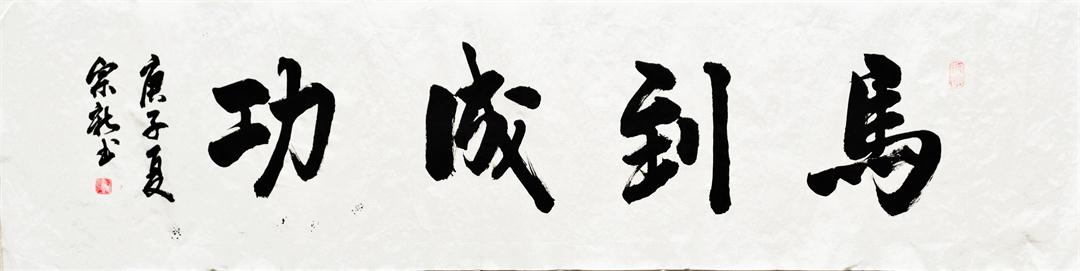 馬到成功
庚子夏
宗新书